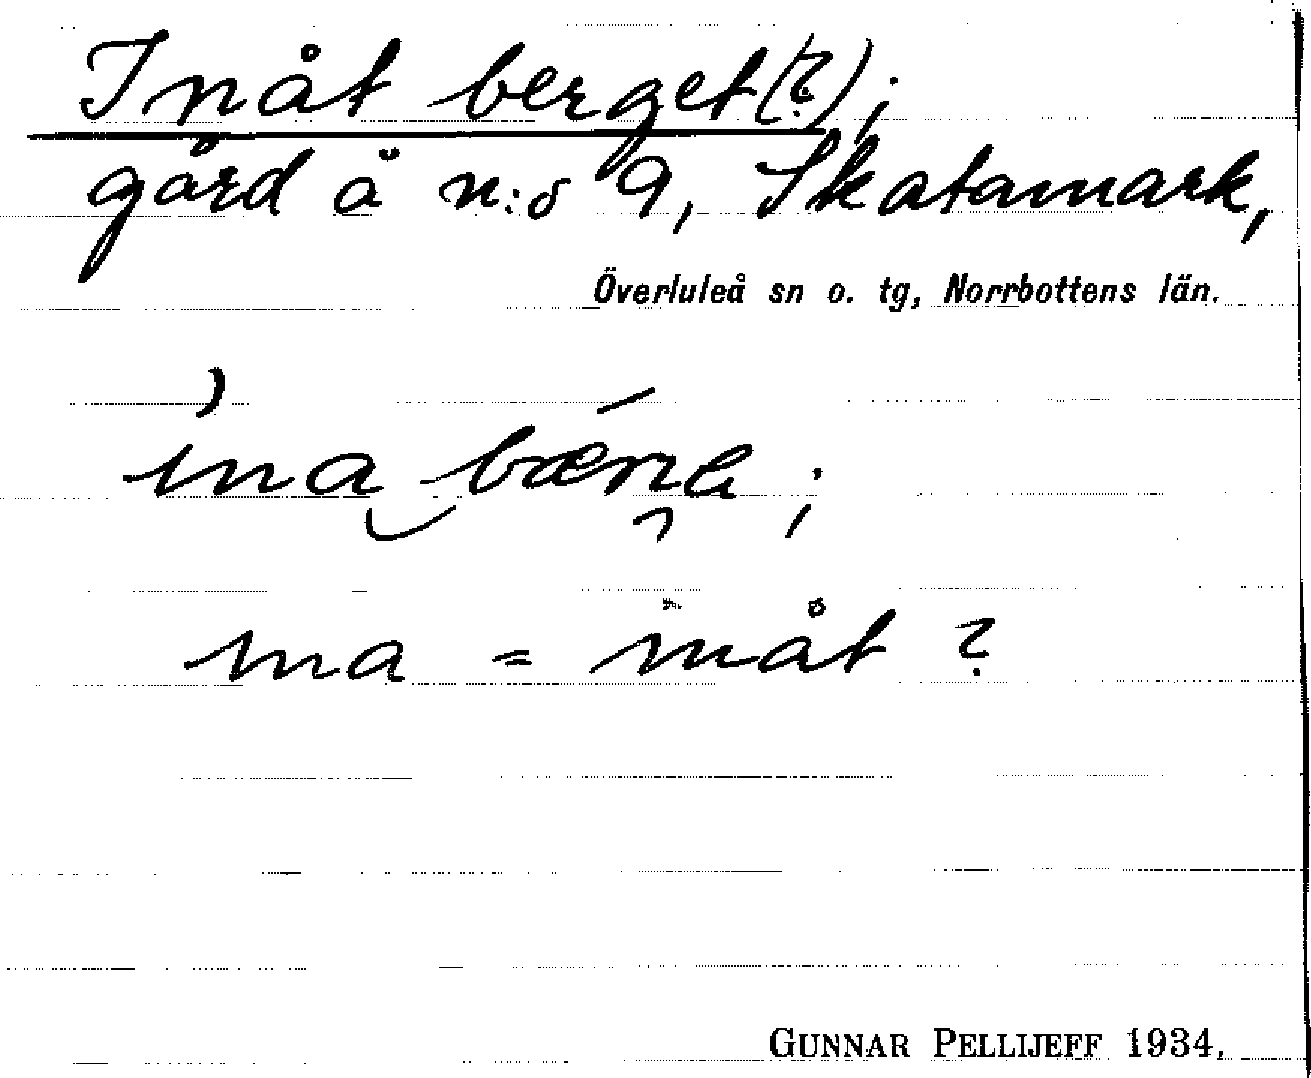 Inåt berget(?);
gård å n:o 9, Skatamark,
Överluleå sn o. tg, Norrbottens län.
ina bærɑ;
ina = inåt ?
GUNNAR PELLIJEFF 1934.